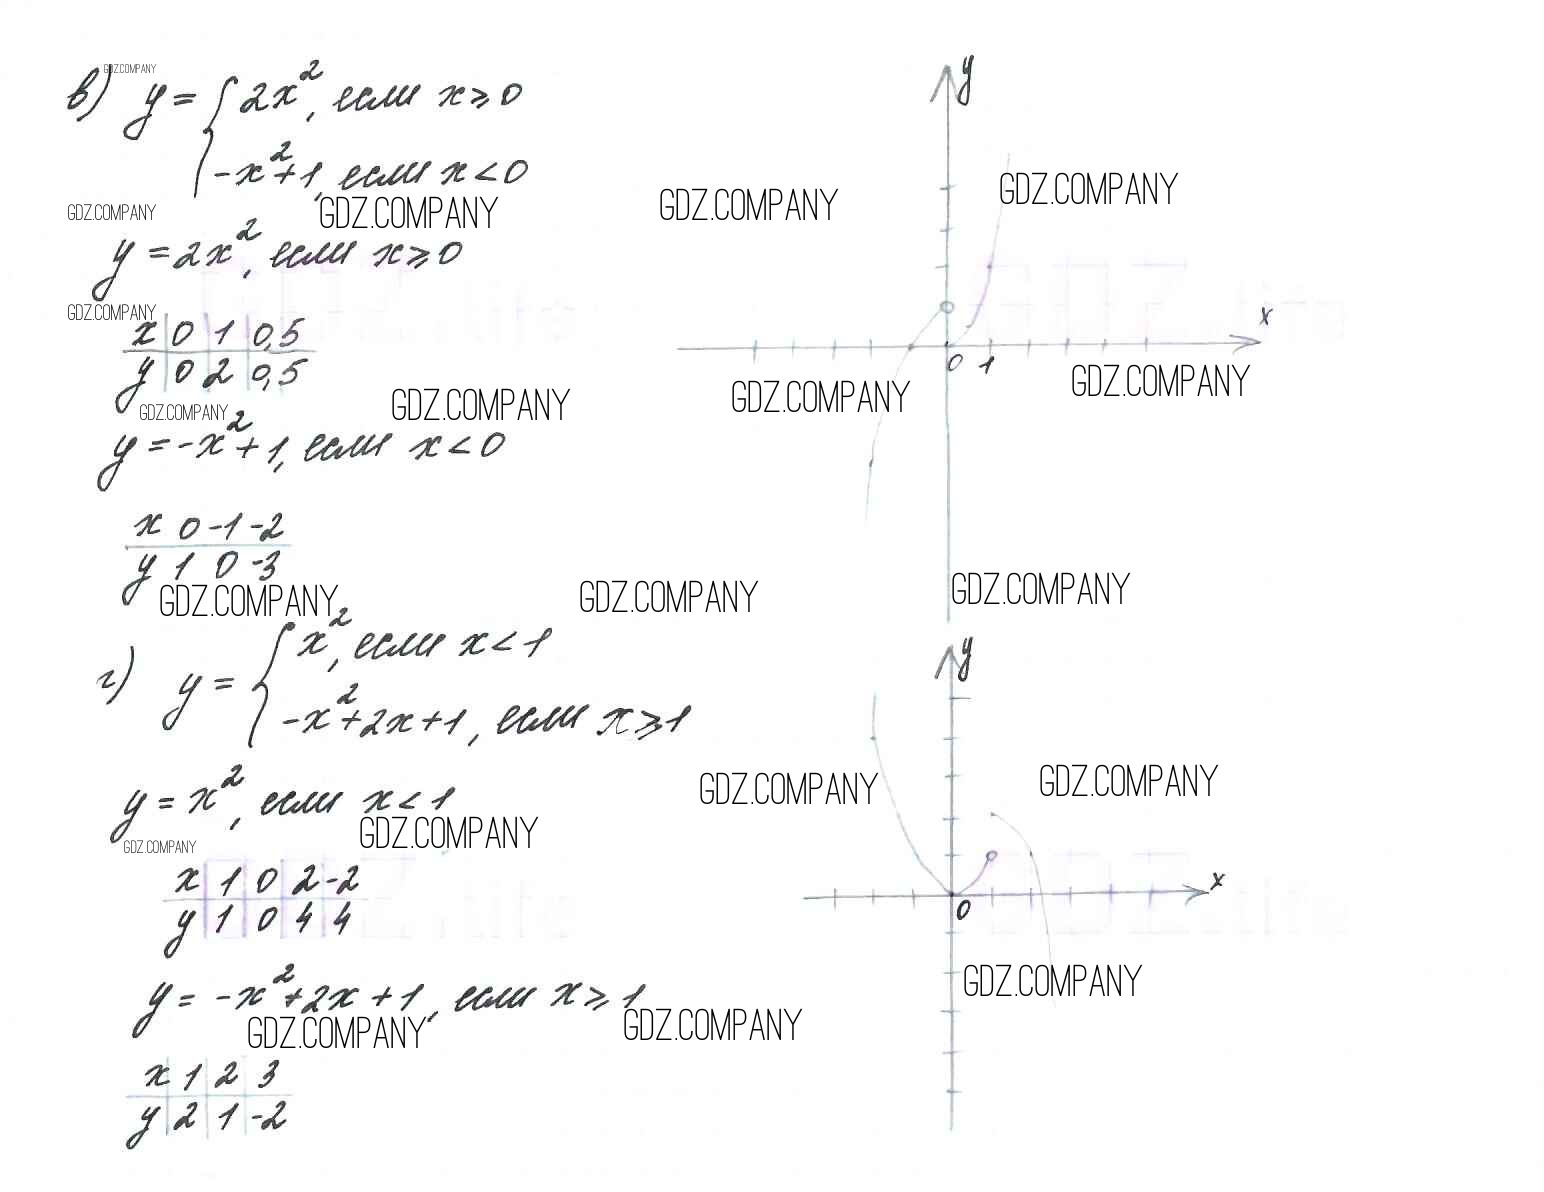 GDZ.COMPANY
в) y = { 2x², если x ≥ 0
-x²+1, если x < 0
GDZ.COMPANY GDZ.COMPANY GDZ.COMPANY GDZ.COMPANY
y = 2x², если x ≥ 0
GDZ.life GDZ.life
GDZ.COMPANY
x 0 1 0,5
y 0 2 0,5
GDZ.COMPANY GDZ.COMPANY GDZ.COMPANY GDZ.COMPANY
y = -x²+1, если x < 0
x 0 -1 -2
y 1 0 -3
GDZ.COMPANY GDZ.COMPANY GDZ.COMPANY
y
x
0 1
г) y = { x², если x < 1
-x²+2x+1, если x ≥ 1
GDZ.COMPANY GDZ.COMPANY
y = x², если x < 1
GDZ.COMPANY GDZ.COMPANY
x 1 0 2 -2
y 1 0 4 4
GDZ.life GDZ.life
y = -x²+2x+1, если x ≥ 1
GDZ.COMPANY GDZ.COMPANY GDZ.COMPANY
x 1 2 3
y 2 1 -2
y
x
0